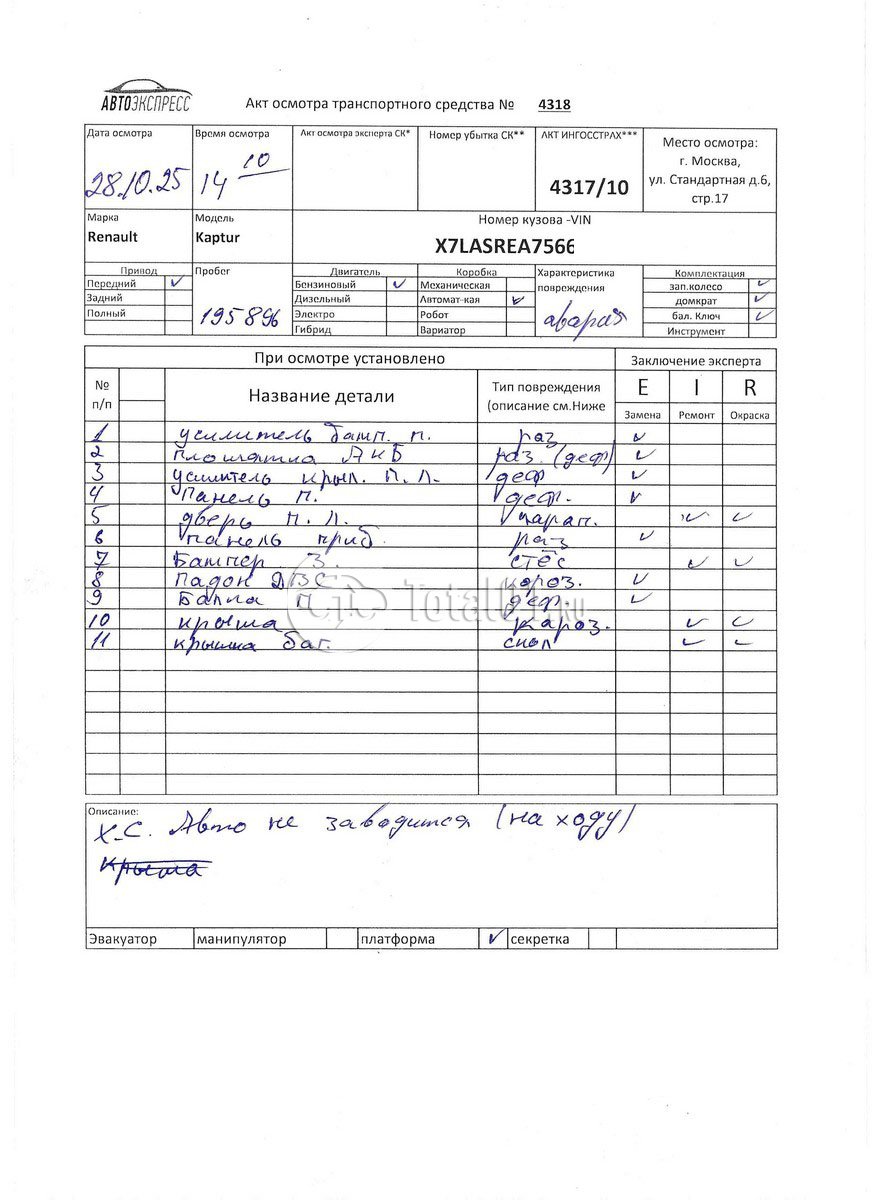 АВТОЭКСПРЕСС
Акт осмотра транспортного средства № 4318
Дата осмотра Время осмотра Акт осмотра эксперта СК* Номер убытка СК** АКТ ИНГОССТРАХ*** Место осмотра:
28.10.25 14 10 4317/10 г. Москва,
ул. Стандартная д.6,
стр.17
Марка Модель Номер кузова -VIN
Renault Kaptur X7LASREA7566
Привод Пробег Двигатель Коробка Характеристика повреждения Комплектация
Передний ✓ 195896 Бензиновый ✓ Механическая авария зап.колесо ✓
Задний Дизельный Автомат-кая ✓ домкрат ✓
Полный Электро Робот бал. Ключ ✓
Гибрид Вариатор Инструмент
При осмотре установлено Заключение эксперта
№ п/п Название детали Тип повреждения (описание см.Ниже E I R
Замена Ремонт Окраска
1 усилитель бамп. п. раз ✓
2 площатка АКБ раз. (деф) ✓
3 усилитель крыл. п. л. деф ✓
4 Панель п. деф. ✓
5 дверь п. л. царап. ✓ ✓
6 панель приб. раз ✓
7 Бампер з. стёс ✓ ✓
8 Падон ДВС короз. ✓
9 Балка п деф ✓
10 крыша кароз. ✓ ✓
11 крышка баг. скол ✓ ✓
TotalO1.ru
Описание:
Х-С. Авто не заводится (на ходу)
Крыша
Эвакуатор манипулятор платформа ✓ секретка